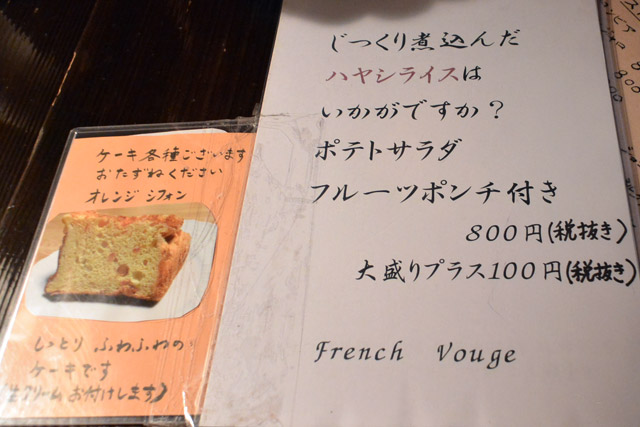 じっくり煮込んだ
ハヤシライスは
いかがですか？
ポテトサラダ
フルーツポンチ付き
800円(税抜き)
大盛りプラス100円(税抜き)
French Vouge
ケーキ各種ございます
おたずねください
オレンジ シフォン
しっとり ふわふわの
ケーキです
(生クリームお付けします)